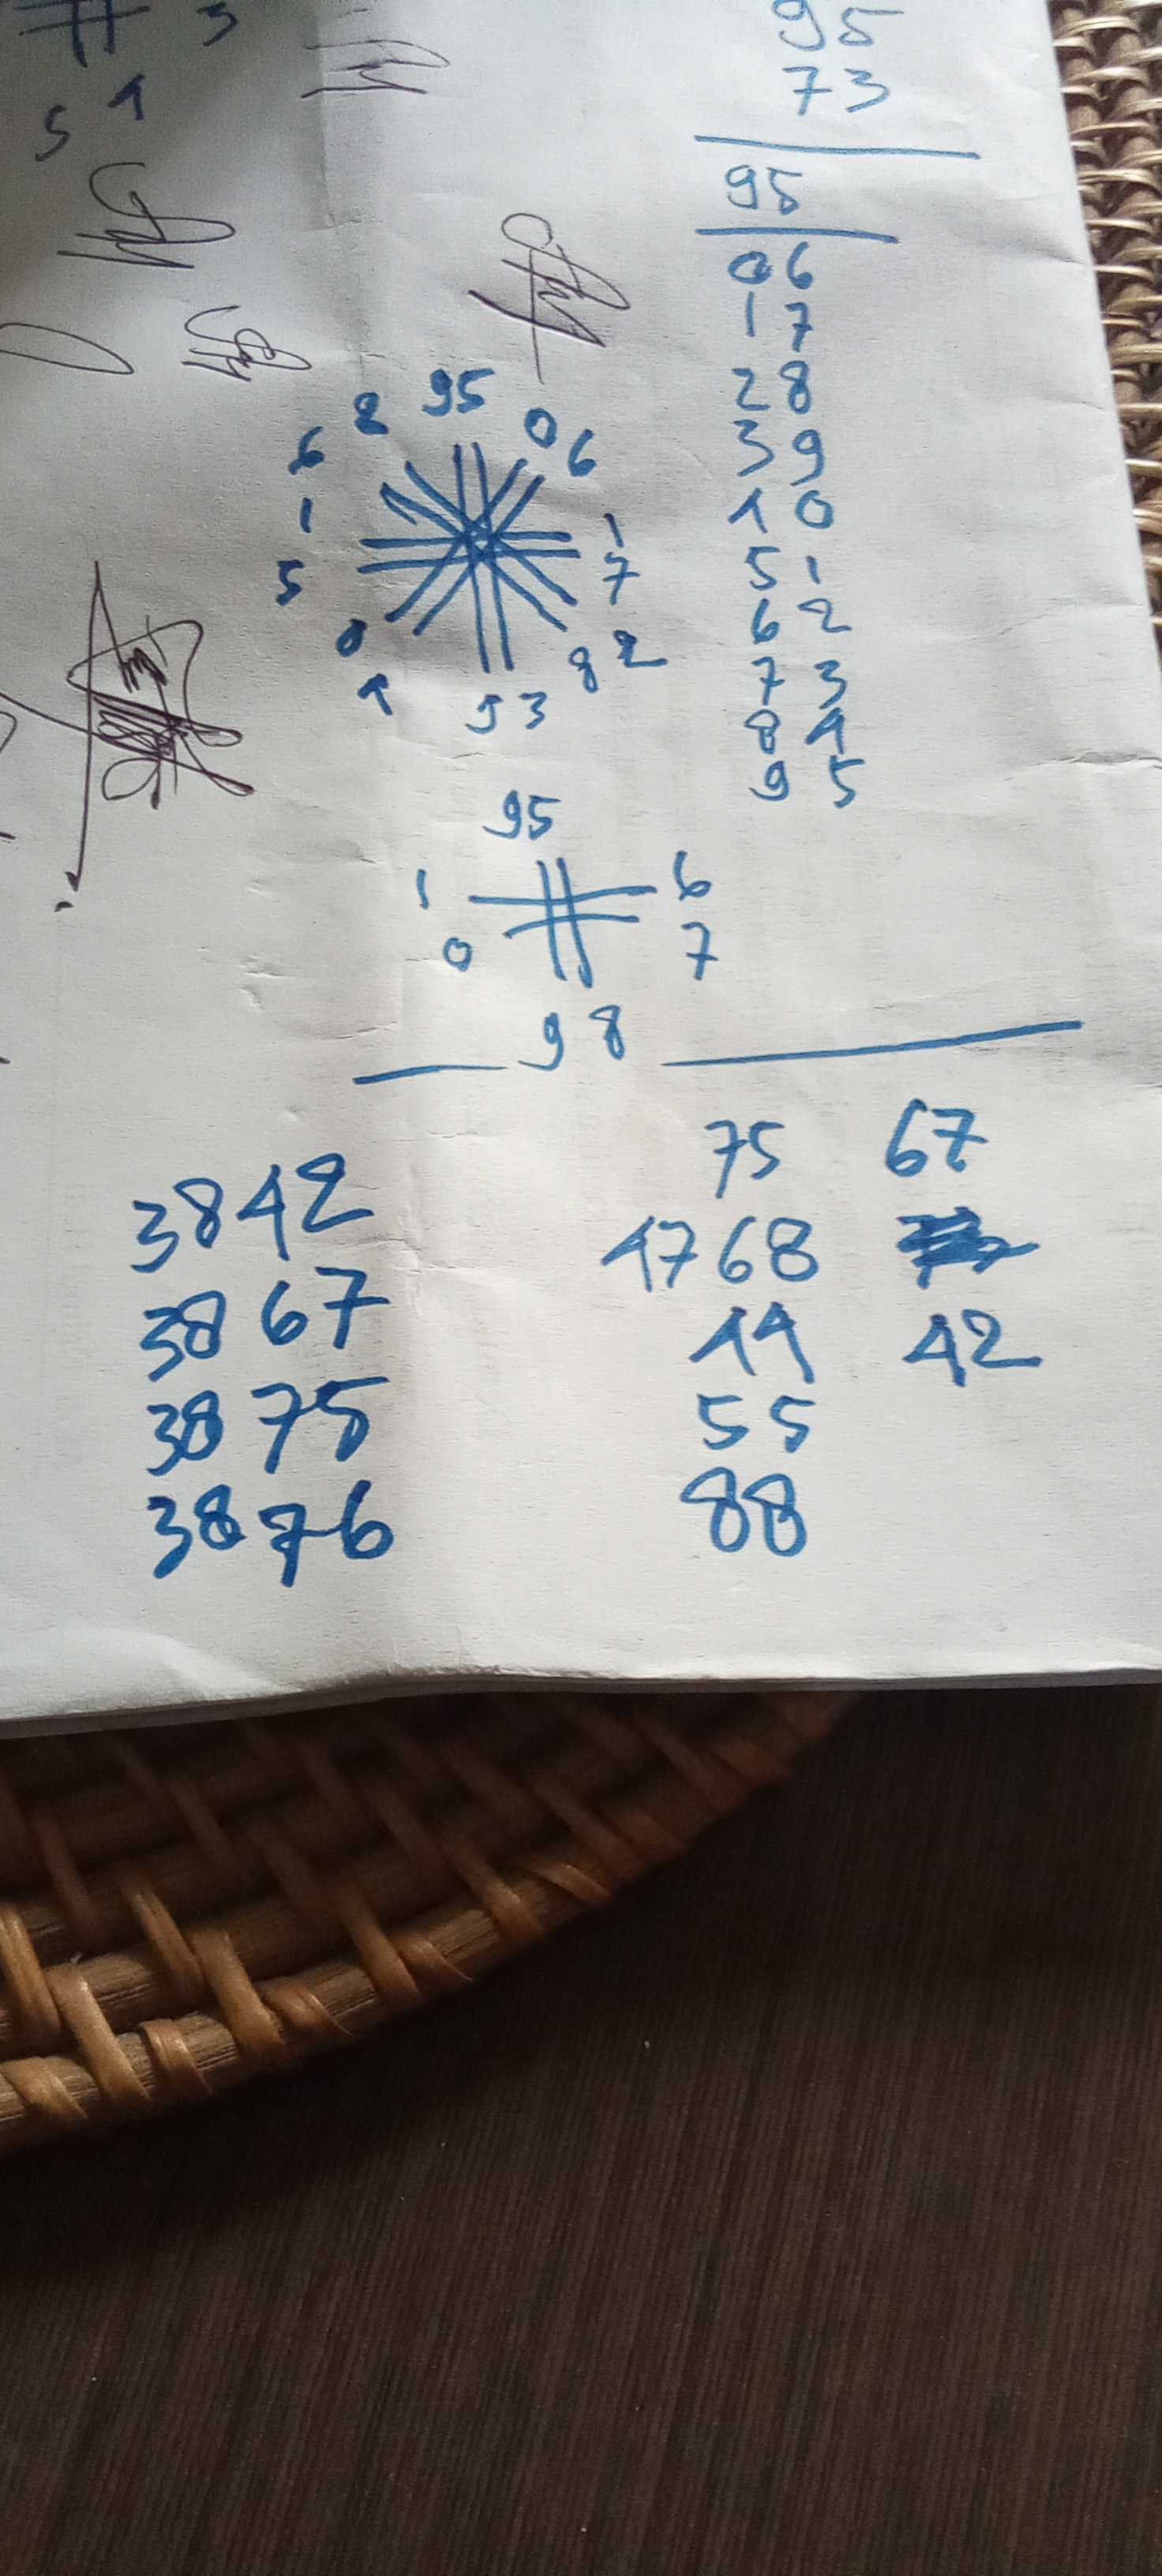 3
5 1
95
73
95
06
17
28
39
40
51
62
73
84
95
95
8
0 6
6
1
1
5
7
0
8 2
1
53
95
1
6
0
7
98
3842
3867
3875
3876
75 67
4768
44 42
55
88